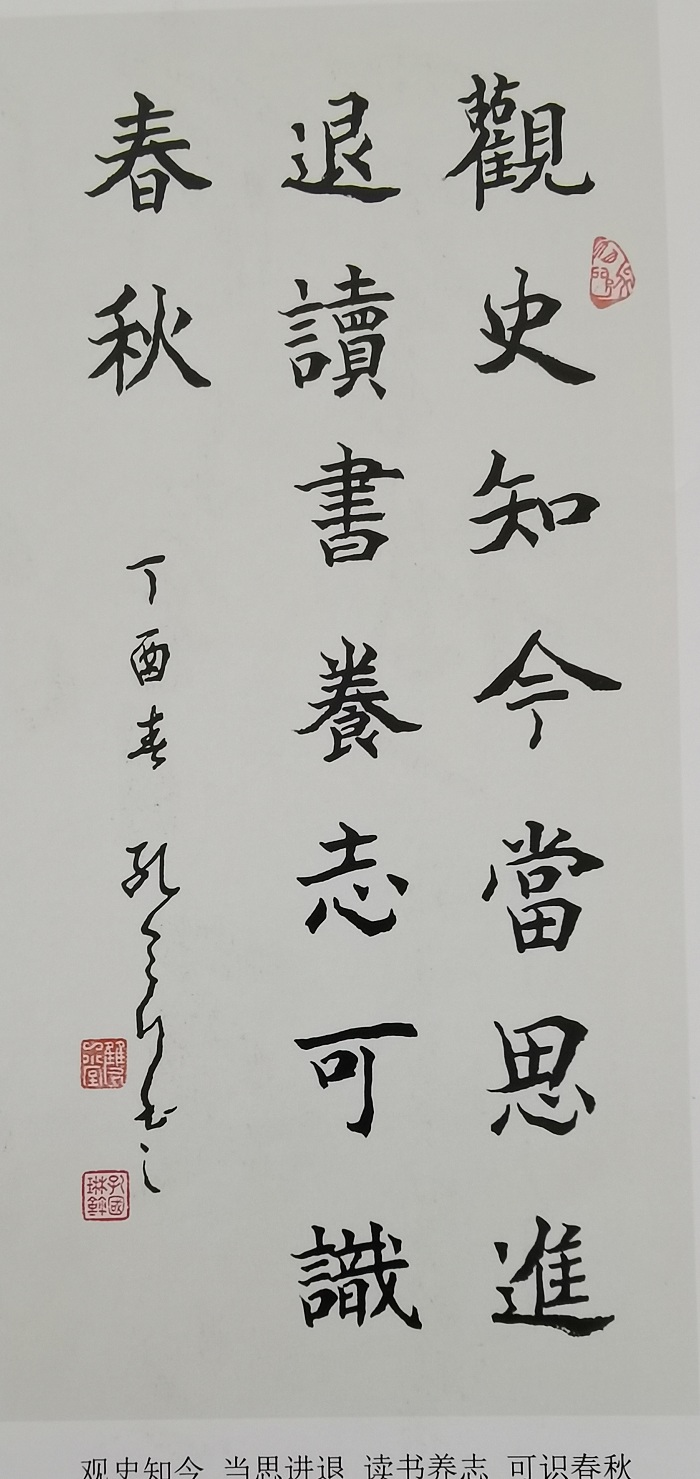 觀史知今當思進
退讀書養志可識
春秋
丁酉春 孔
书之
观史知今 当思进退 读书养志 可识春秋